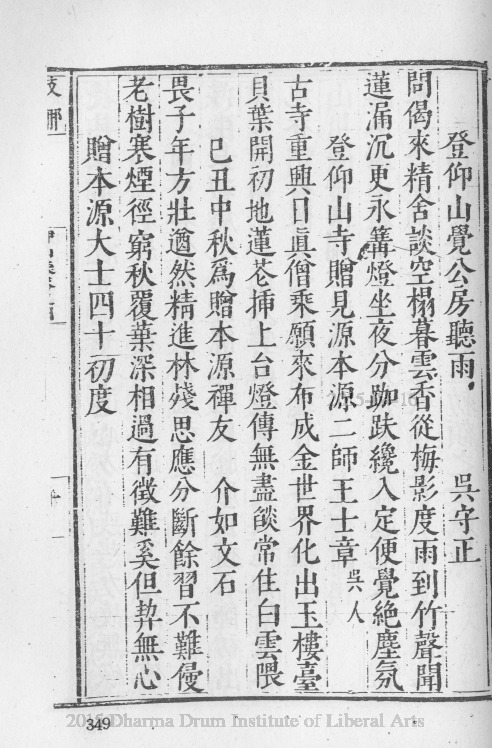 登仰山覺公房聽雨　吳守正
問偈來精舍談空榻暮雲香從梅影度雨到竹聲聞
蓮漏沉更永篝燈坐夜分跏趺纔入定便覺絶塵氛
登仰山寺贈見源本源二師王士章吳人
古寺重興日眞僧乘願來布成金世界化出玉樓臺
貝葉開初地蓮花揷上台燈傳無盡燄常住白雲隈
己丑中秋爲贈本源禪友　介如文石
畏子年方壯遒然精進林殘思應分斷餘習不難侵
老樹寒煙徑窮秋覆葉深相過有徵難奚但契無心
贈本源大士四十初度
349
2015 Dharma Drum Institute of Liberal Arts